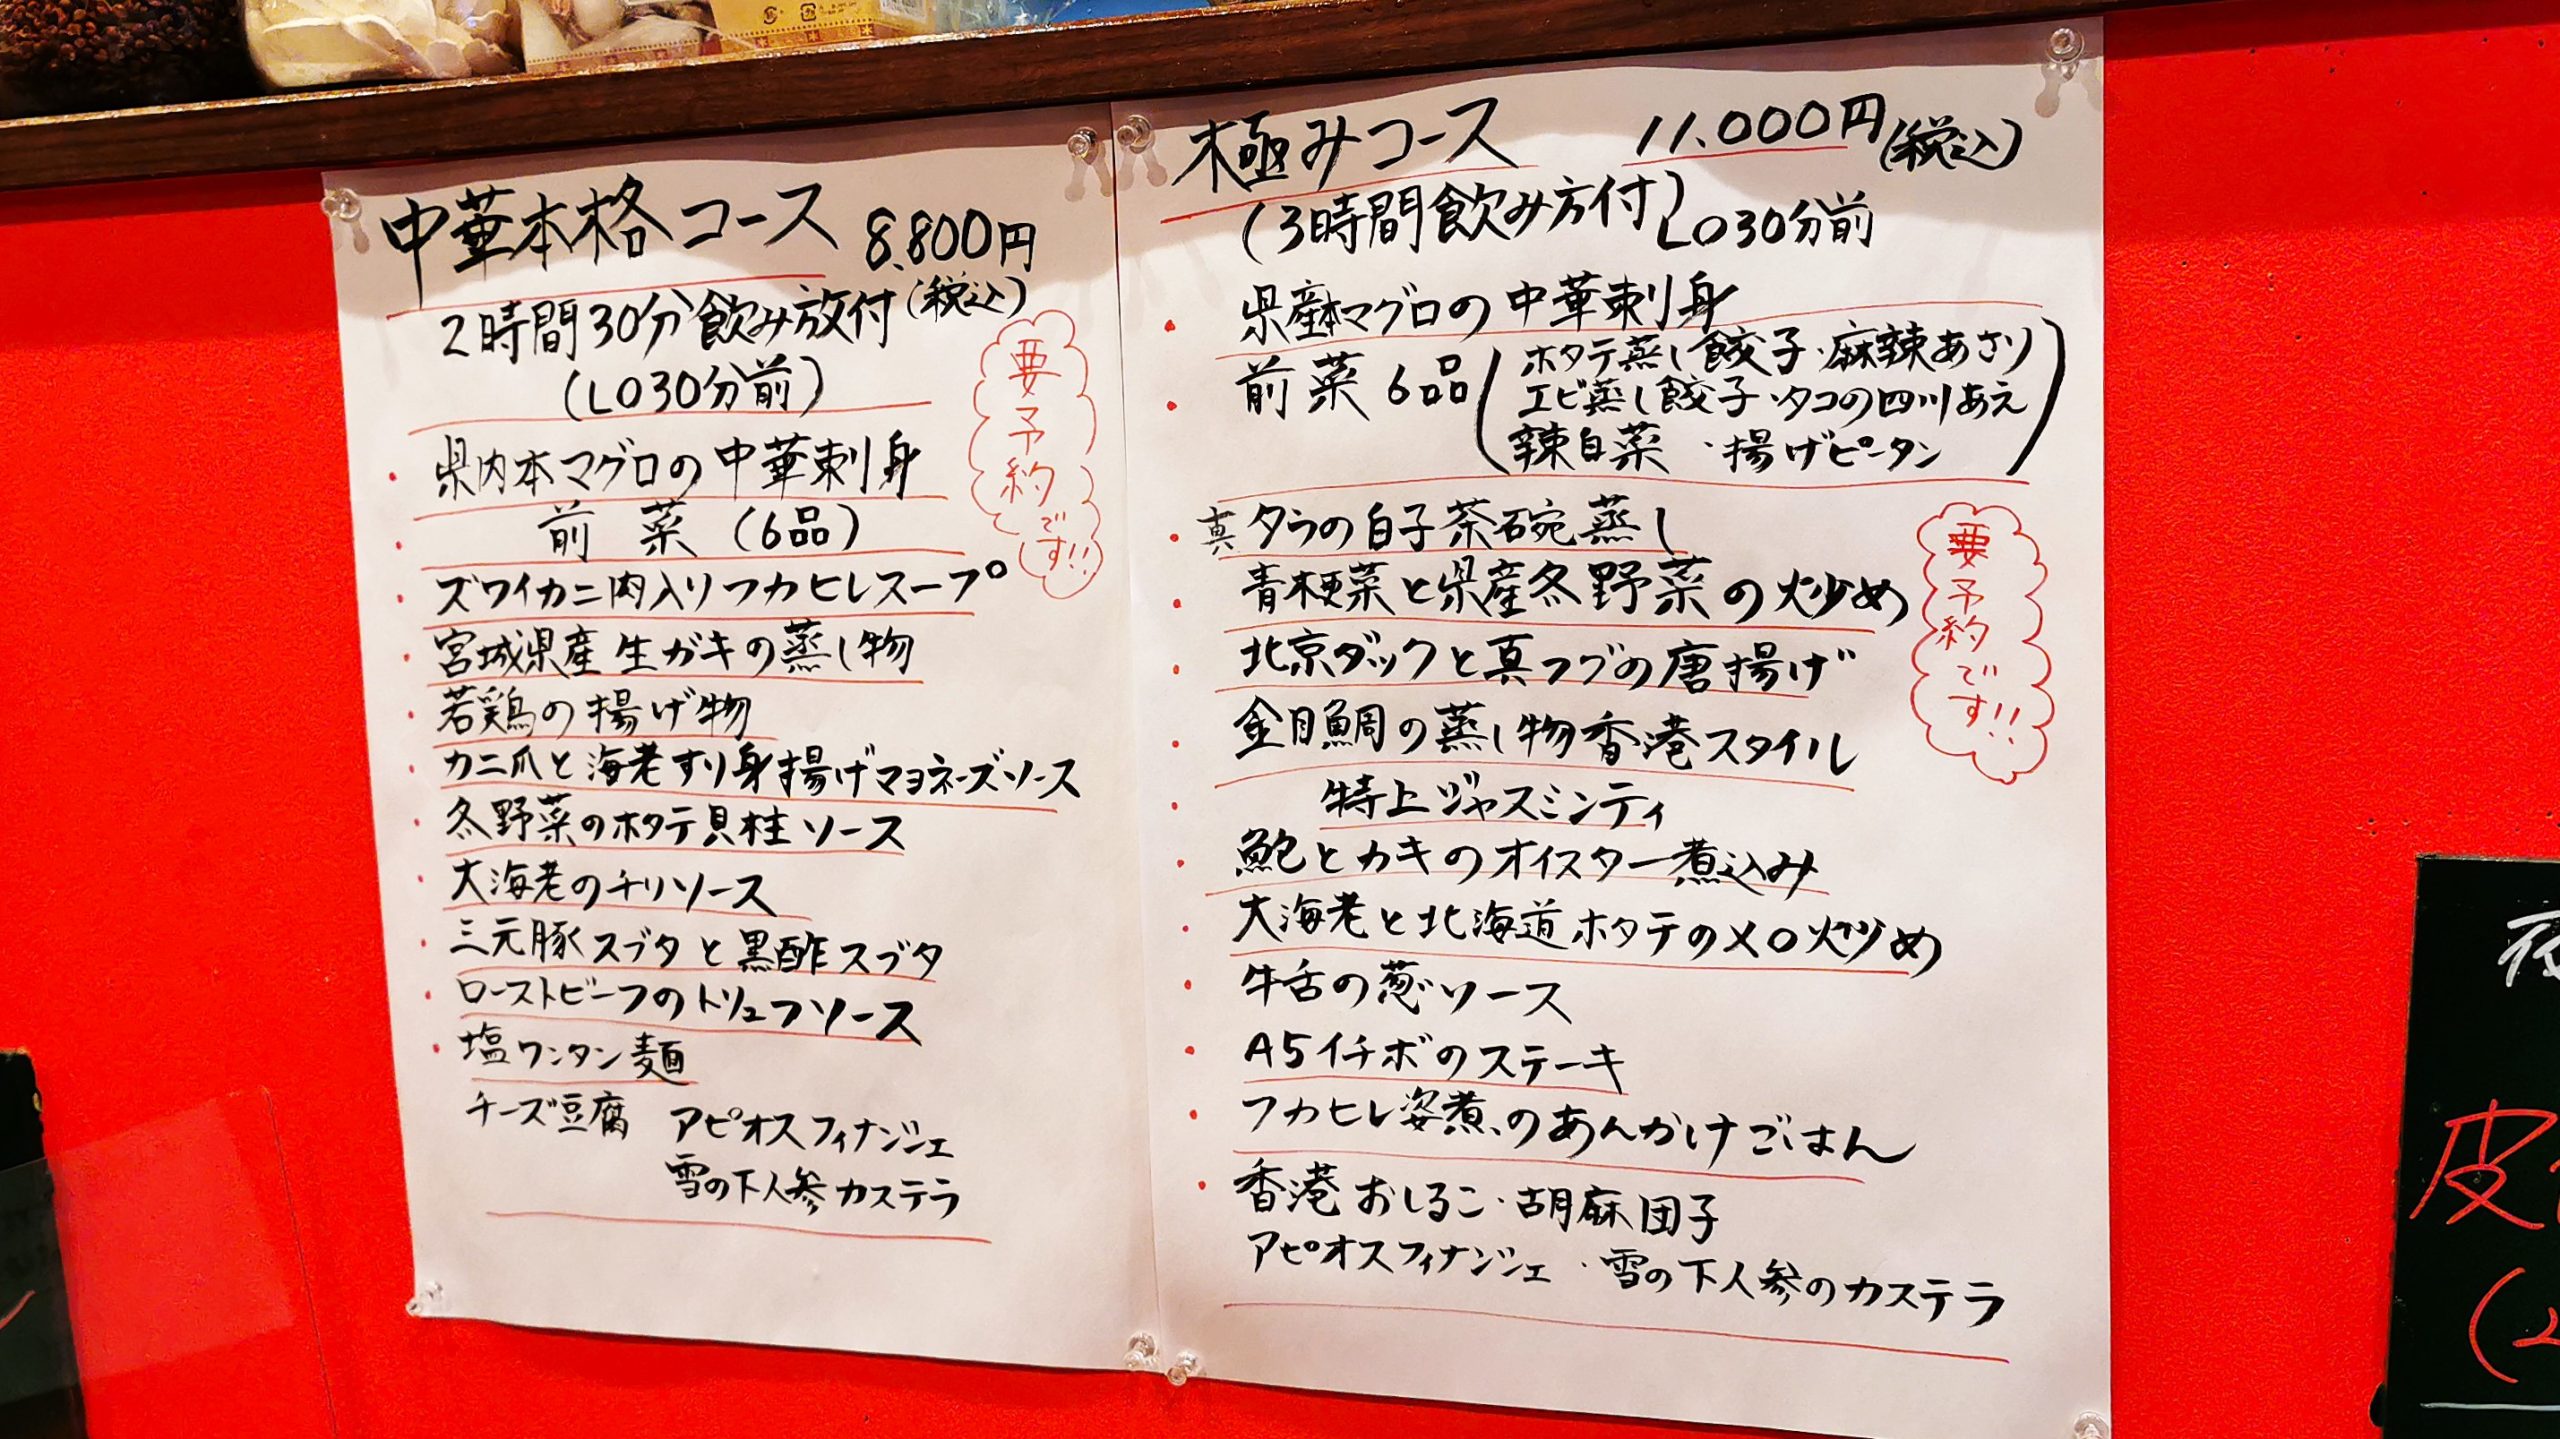 中華本格コース 8.800円
(税込)
2時間30分飲み放付
(LO30分前)
要予約です!!
県内本マグロの中華刺身
前菜(6品)
ズワイカニ肉入りフカヒレスープ
宮城県産生ガキの蒸し物
若鶏の揚げ物
カニ爪と海老すり身揚げマヨネーズソース
冬野菜のホタテ貝柱ソース
大海老のチリソース
三元豚スブタと黒酢スブタ
ローストビーフのトリュフソース
塩ワンタン麺
チーズ豆腐 アピオスフィナンジェ
雪の下人参カステラ
極みコース 11.000円(税込)
(3時間飲み方付)LO30分前
県産本マグロの中華刺身
前菜6品(ホタテ蒸し餃子・麻辣あさり
エビ蒸し餃子・タコの四川あえ
辣白菜・揚げピータン)
真タラの白子茶碗蒸し
青梗菜と県産冬野菜の炒め
要予約です!!
北京ダックと真フグの唐揚げ
金目鯛の蒸し物香港スタイル
特上ジャスミンティ
鮑とカキのオイスター煮込み
大海老と北海道ホタテのXO炒め
牛舌の葱ソース
A5イチボのステーキ
フカヒレ姿煮のあんかけごはん
香港おしるこ・胡麻団子
アピオスフィナンジェ・雪の下人参のカステラ
皮